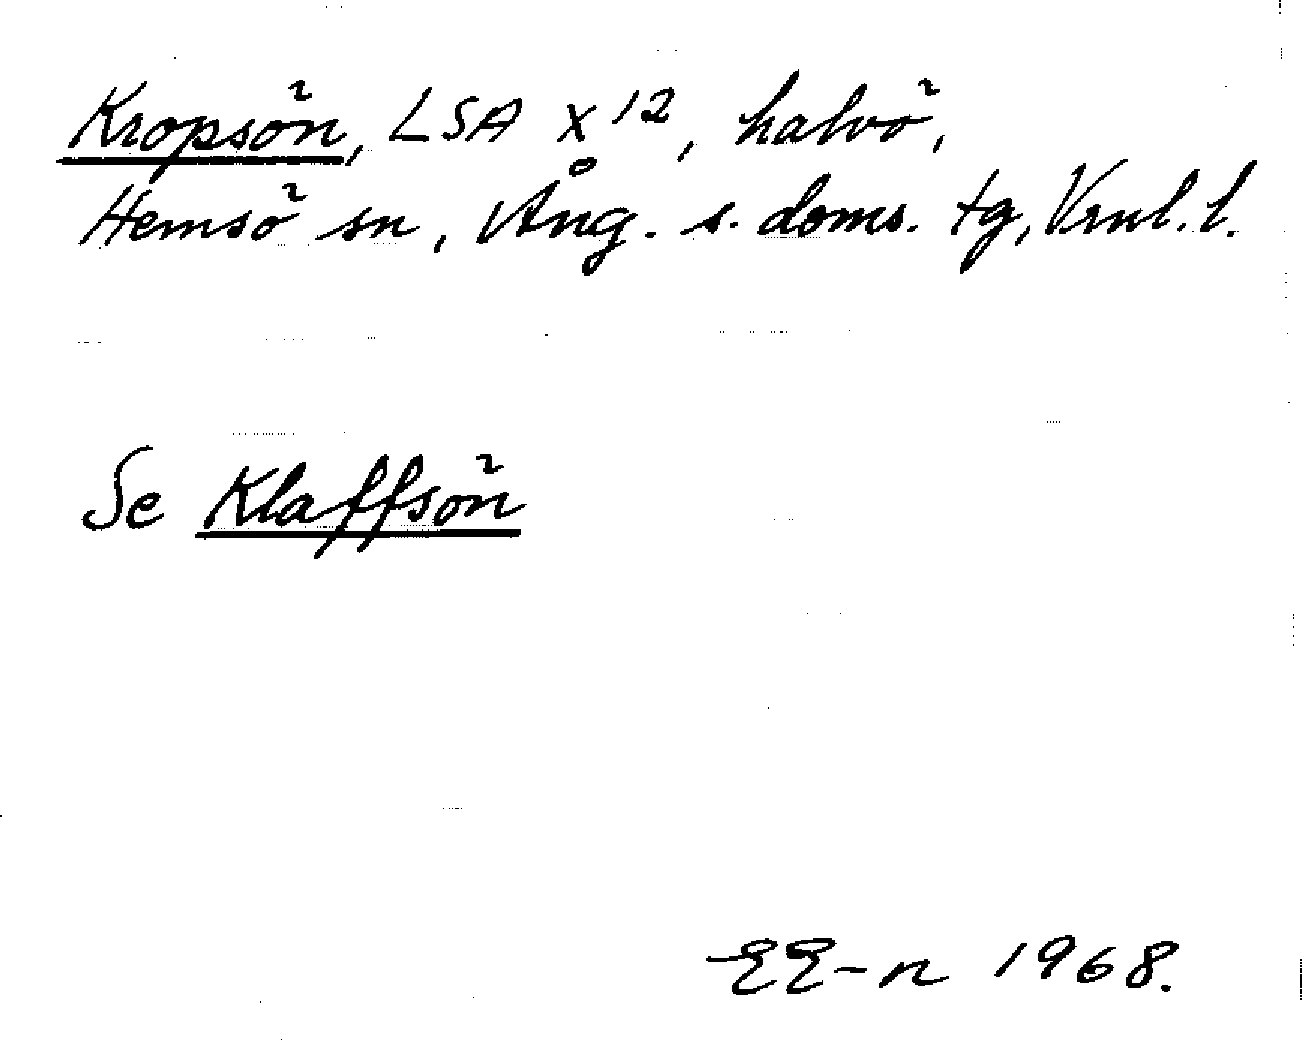 Kropsön, LSA X 12, halvö,
Hemsö sn, Ång. s. doms. tg, Vrnl. l.
Se Klaffsön
EE-n 1968.